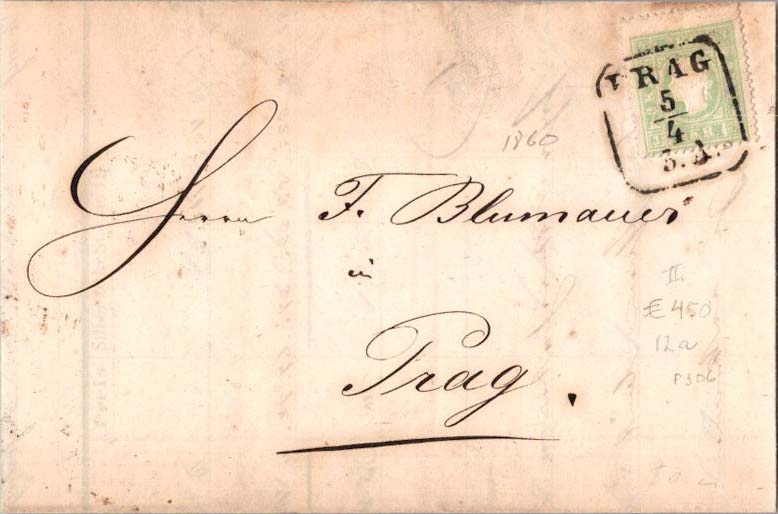 PRAG
5
4
5. A.
1860
Herrn F. Blumauer
in
Prag.
II
€ 450
12a
P306